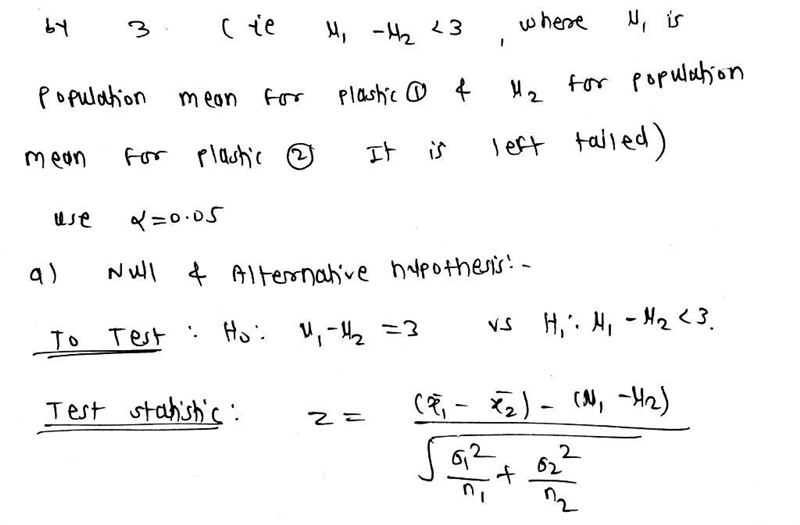 by 3. (ie μ₁ - μ₂ < 3, where μ₁ is
population mean for plastic ① & μ₂ for population
mean for plastic ② It is left tailed)
use α=0.05
a) Null & Alternative hypothesis:-
To Test : H₀: μ₁-μ₂ =3 vs H₁: μ₁ - μ₂ <3.
Test statistic: z = ((x̄₁ - x̄₂) - (μ₁ - μ₂)) / √(σ₁²/n₁ + σ₂²/n₂)